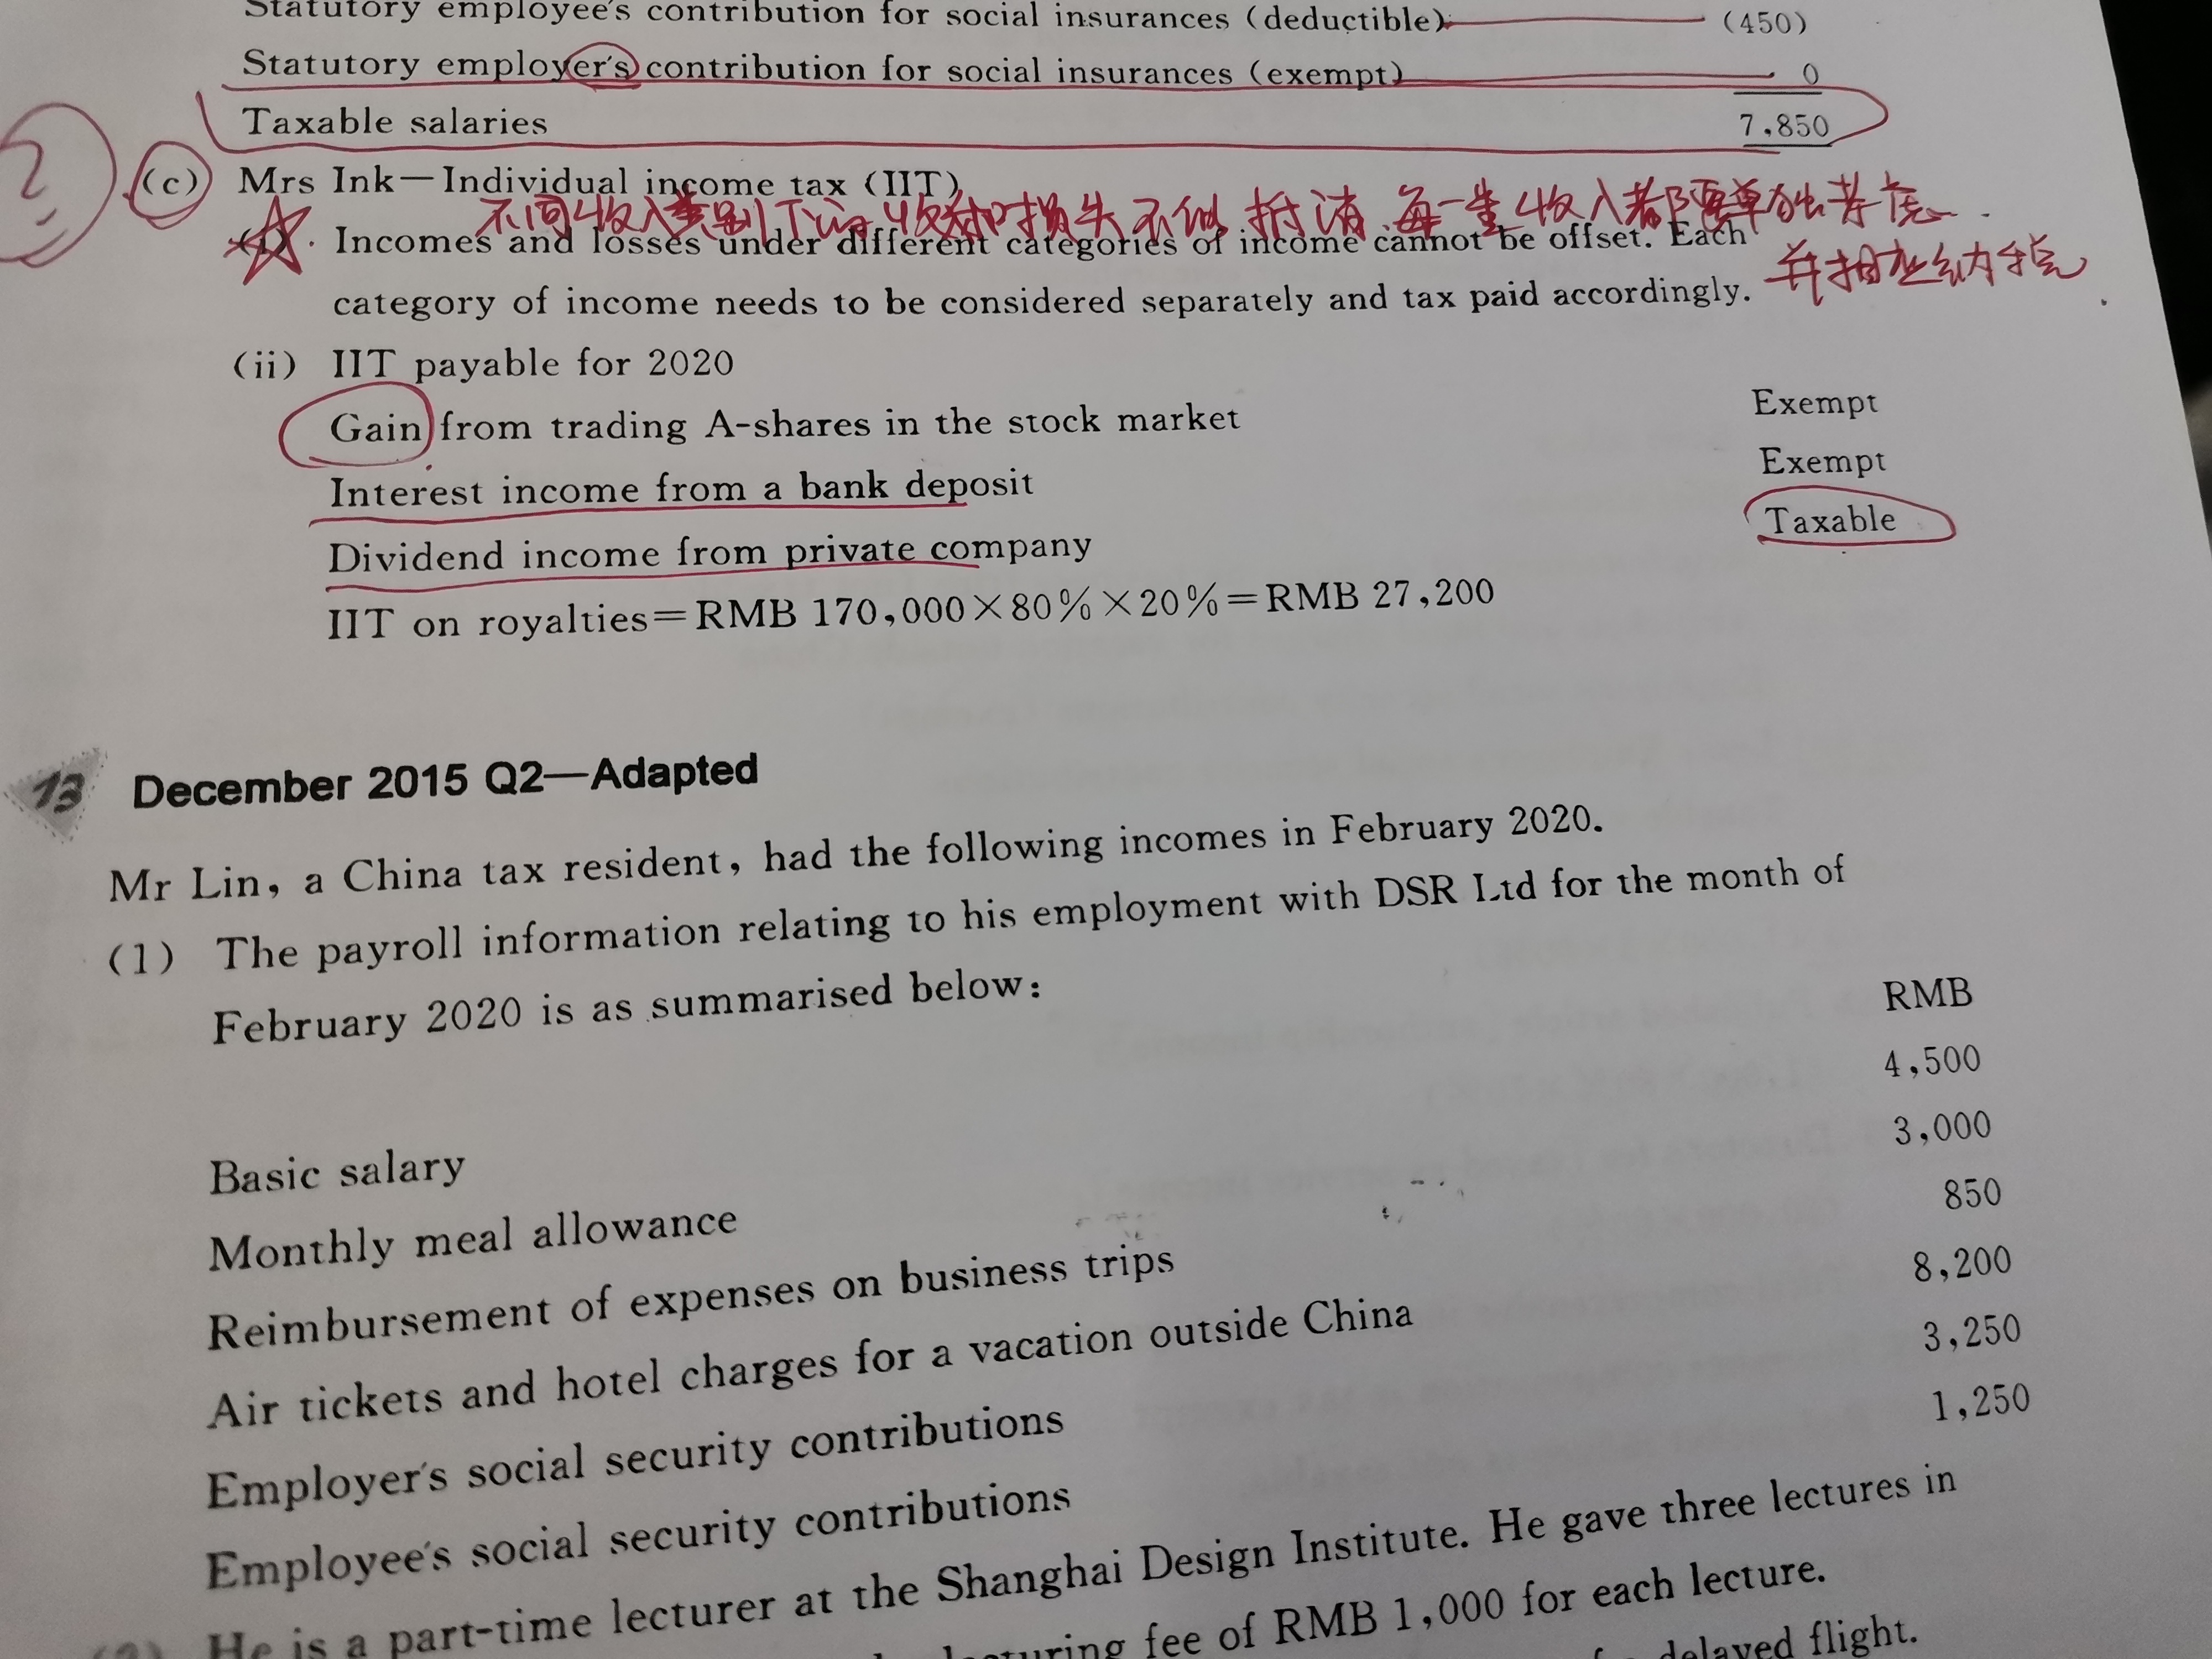 Statutory employee's contribution for social insurances (deductible) (450)
Statutory employer's contribution for social insurances (exempt) 0
Taxable salaries 7,850
2
(c) Mrs Ink—Individual income tax (IIT)
不同收入类别下 收 和损失不 抵消 每一类收入都要单独考虑
(i) Incomes and losses under different categories of income cannot be offset. Each
并相应纳税
category of income needs to be considered separately and tax paid accordingly.
(ii) IIT payable for 2020
Gain from trading A-shares in the stock market Exempt
Interest income from a bank deposit Exempt
Dividend income from private company Taxable
IIT on royalties=RMB 170,000×80%×20%=RMB 27,200
13 December 2015 Q2—Adapted
Mr Lin, a China tax resident, had the following incomes in February 2020.
(1) The payroll information relating to his employment with DSR Ltd for the month of
February 2020 is as summarised below:
RMB
Basic salary 4,500
Monthly meal allowance 3,000
Reimbursement of expenses on business trips 850
Air tickets and hotel charges for a vacation outside China 8,200
Employer's social security contributions 3,250
Employee's social security contributions 1,250
(2) He is a part-time lecturer at the Shanghai Design Institute. He gave three lectures in
lecturing fee of RMB 1,000 for each lecture.
delayed flight.